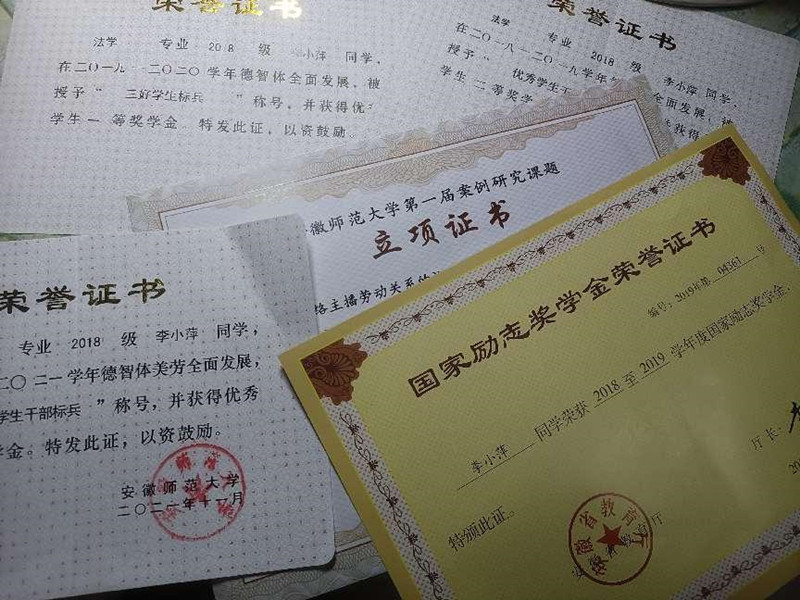 荣誉证书
法学 专业 2018 级 李小萍 同学，
在二〇一九—二〇二〇学年德智体全面发展，被
授予“ 三好学生标兵 ”称号，并获得优
学生 一 等奖学金 特发此证，以资鼓励。
荣誉证书
法学 专业 2018 级 李小萍 同学，
在二〇一八—二〇一九学年 全面发展，被
授予“ 优秀学生干 并获得
学生 二 等奖学
徽师范大学第一届案例研究课题
立项证书
络主播劳动关系的
荣誉证书
专业 2018 级 李小萍 同学，
二〇二一学年德智体美劳全面发展，
学生干部标兵 ”称号，并获得优秀
学金。特发此证，以资鼓励。
安徽师范大学
二〇二一年十一月
国家励志奖学金荣誉证书
编号：2019年第 04361 号
李小萍 同学荣获 2018 至 2019 学年度国家励志奖学金，
特颁此证。
厅长：
安徽省教育厅
安徽省教育厅